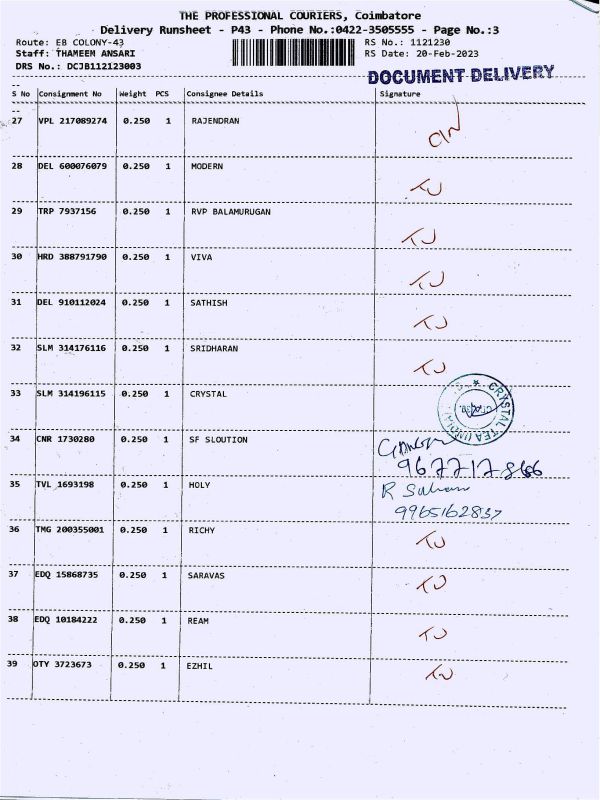 THE PROFESSIONAL COURIERS, Coimbatore
Delivery Runsheet - P43 - Phone No.:0422-3505555 - Page No.:3
Route: EB COLONY-43 RS No.: 1121230
Staff: THAMEEM ANSARI RS Date: 20-Feb-2023
DRS No.: DCJB112123003
DOCUMENT DELIVERY
S No Consignment No Weight PCS Consignee Details Signature
27 VPL 217089274 0.250 1 RAJENDRAN
28 DEL 600076079 0.250 1 MODERN
29 TRP 7937156 0.250 1 RVP BALAMURUGAN
30 HRD 388791790 0.250 1 VIVA
31 DEL 910112024 0.250 1 SATHISH
32 SLM 314176116 0.250 1 SRIDHARAN
33 SLM 314196115 0.250 1 CRYSTAL
CRYSTAL TEA (INDIA)
34 CNR 1730280 0.250 1 SF SLOUTION
35 TVL 1693198 0.250 1 HOLY
9965162837
36 TMG 200355001 0.250 1 RICHY
37 EDQ 15868735 0.250 1 SARAVAS
38 EDQ 10184222 0.250 1 REAM
39 OTY 3723673 0.250 1 EZHIL